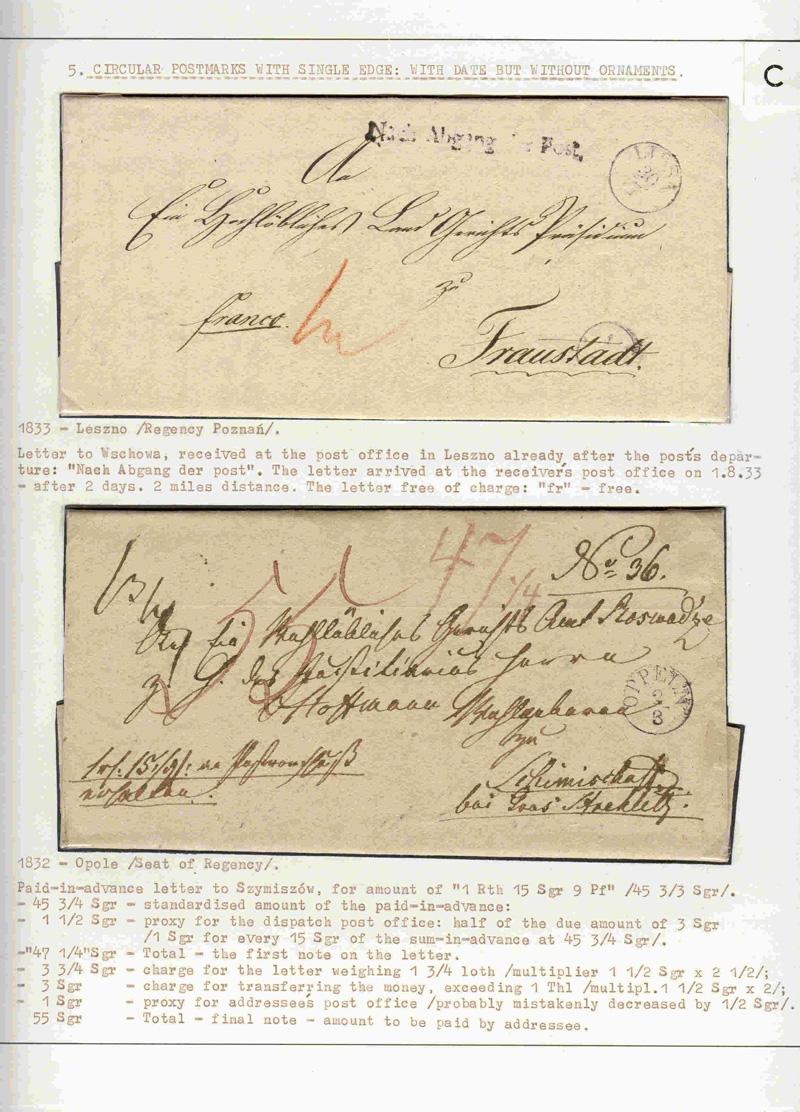 5. CIRCULAR POSTMARKS WITH SINGLE EDGE: WITH DATE BUT WITHOUT ORNAMENTS.
C
Nach Abgang der Post.
LISSA
30
An
Ein Hochlöbliches Land Gerichts Präsidium
zu
franco.
Fraustadt.
1833 - Leszno /Regency Poznań/.
Letter to Wschowa, received at the post office in Leszno already after the post's depar-
ture: "Nach Abgang der post". The letter arrived at the receiver's post office on 1.8.33
- after 2 days. 2 miles distance. The letter free of charge: "fr" - free.
47 1/4
No 36.
55
An Ein Wohllöbliches Gerichts Amt
z. H. des Justitiarius Herrn
Wohlgeboren
OPPELN
2
8
zu
erhalten.
Schimischoff
bei Gros Strehlitz.
1832 - Opole /Seat of Regency/.
Paid-in-advance letter to Szymiszów, for amount of "1 Rth 15 Sgr 9 Pf" /45 3/3 Sgr/.
- 45 3/4 Sgr - standardised amount of the paid-in-advance:
- 1 1/2 Sgr - proxy for the dispatch post office: half of the due amount of 3 Sgr
/1 Sgr for every 15 Sgr of the sum-in-advance at 45 3/4 Sgr/.
-"47 1/4"Sgr - Total - the first note on the letter.
- 3 3/4 Sgr - charge for the letter weighing 1 3/4 loth /multiplier 1 1/2 Sgr x 2 1/2/;
- 3 Sgr - charge for transferring the money, exceeding 1 Thl /multipl.1 1/2 Sgr x 2/;
- 1 Sgr - proxy for addressees post office /probably mistakenly decreased by 1/2 Sgr/.
55 Sgr - Total - final note - amount to be paid by addressee.